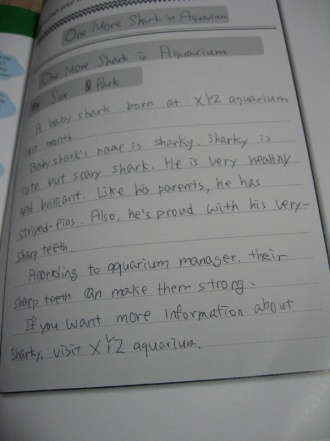 One More Shark in Aquarium
One More Shark in Aquarium
By Sue Park
A baby shark born at XYZ aquarium
last month.
Baby shark's name is sharky. Sharky is
cute but scary shark. He is very healthy
and brilliant. Like his parents, he has
striped-fins. Also, he's proud with his very-
sharp teeth.
According to aquarium manager, their
sharp teeth can make them strong.
If you want more information about
sharky, visit XYZ aquarium.